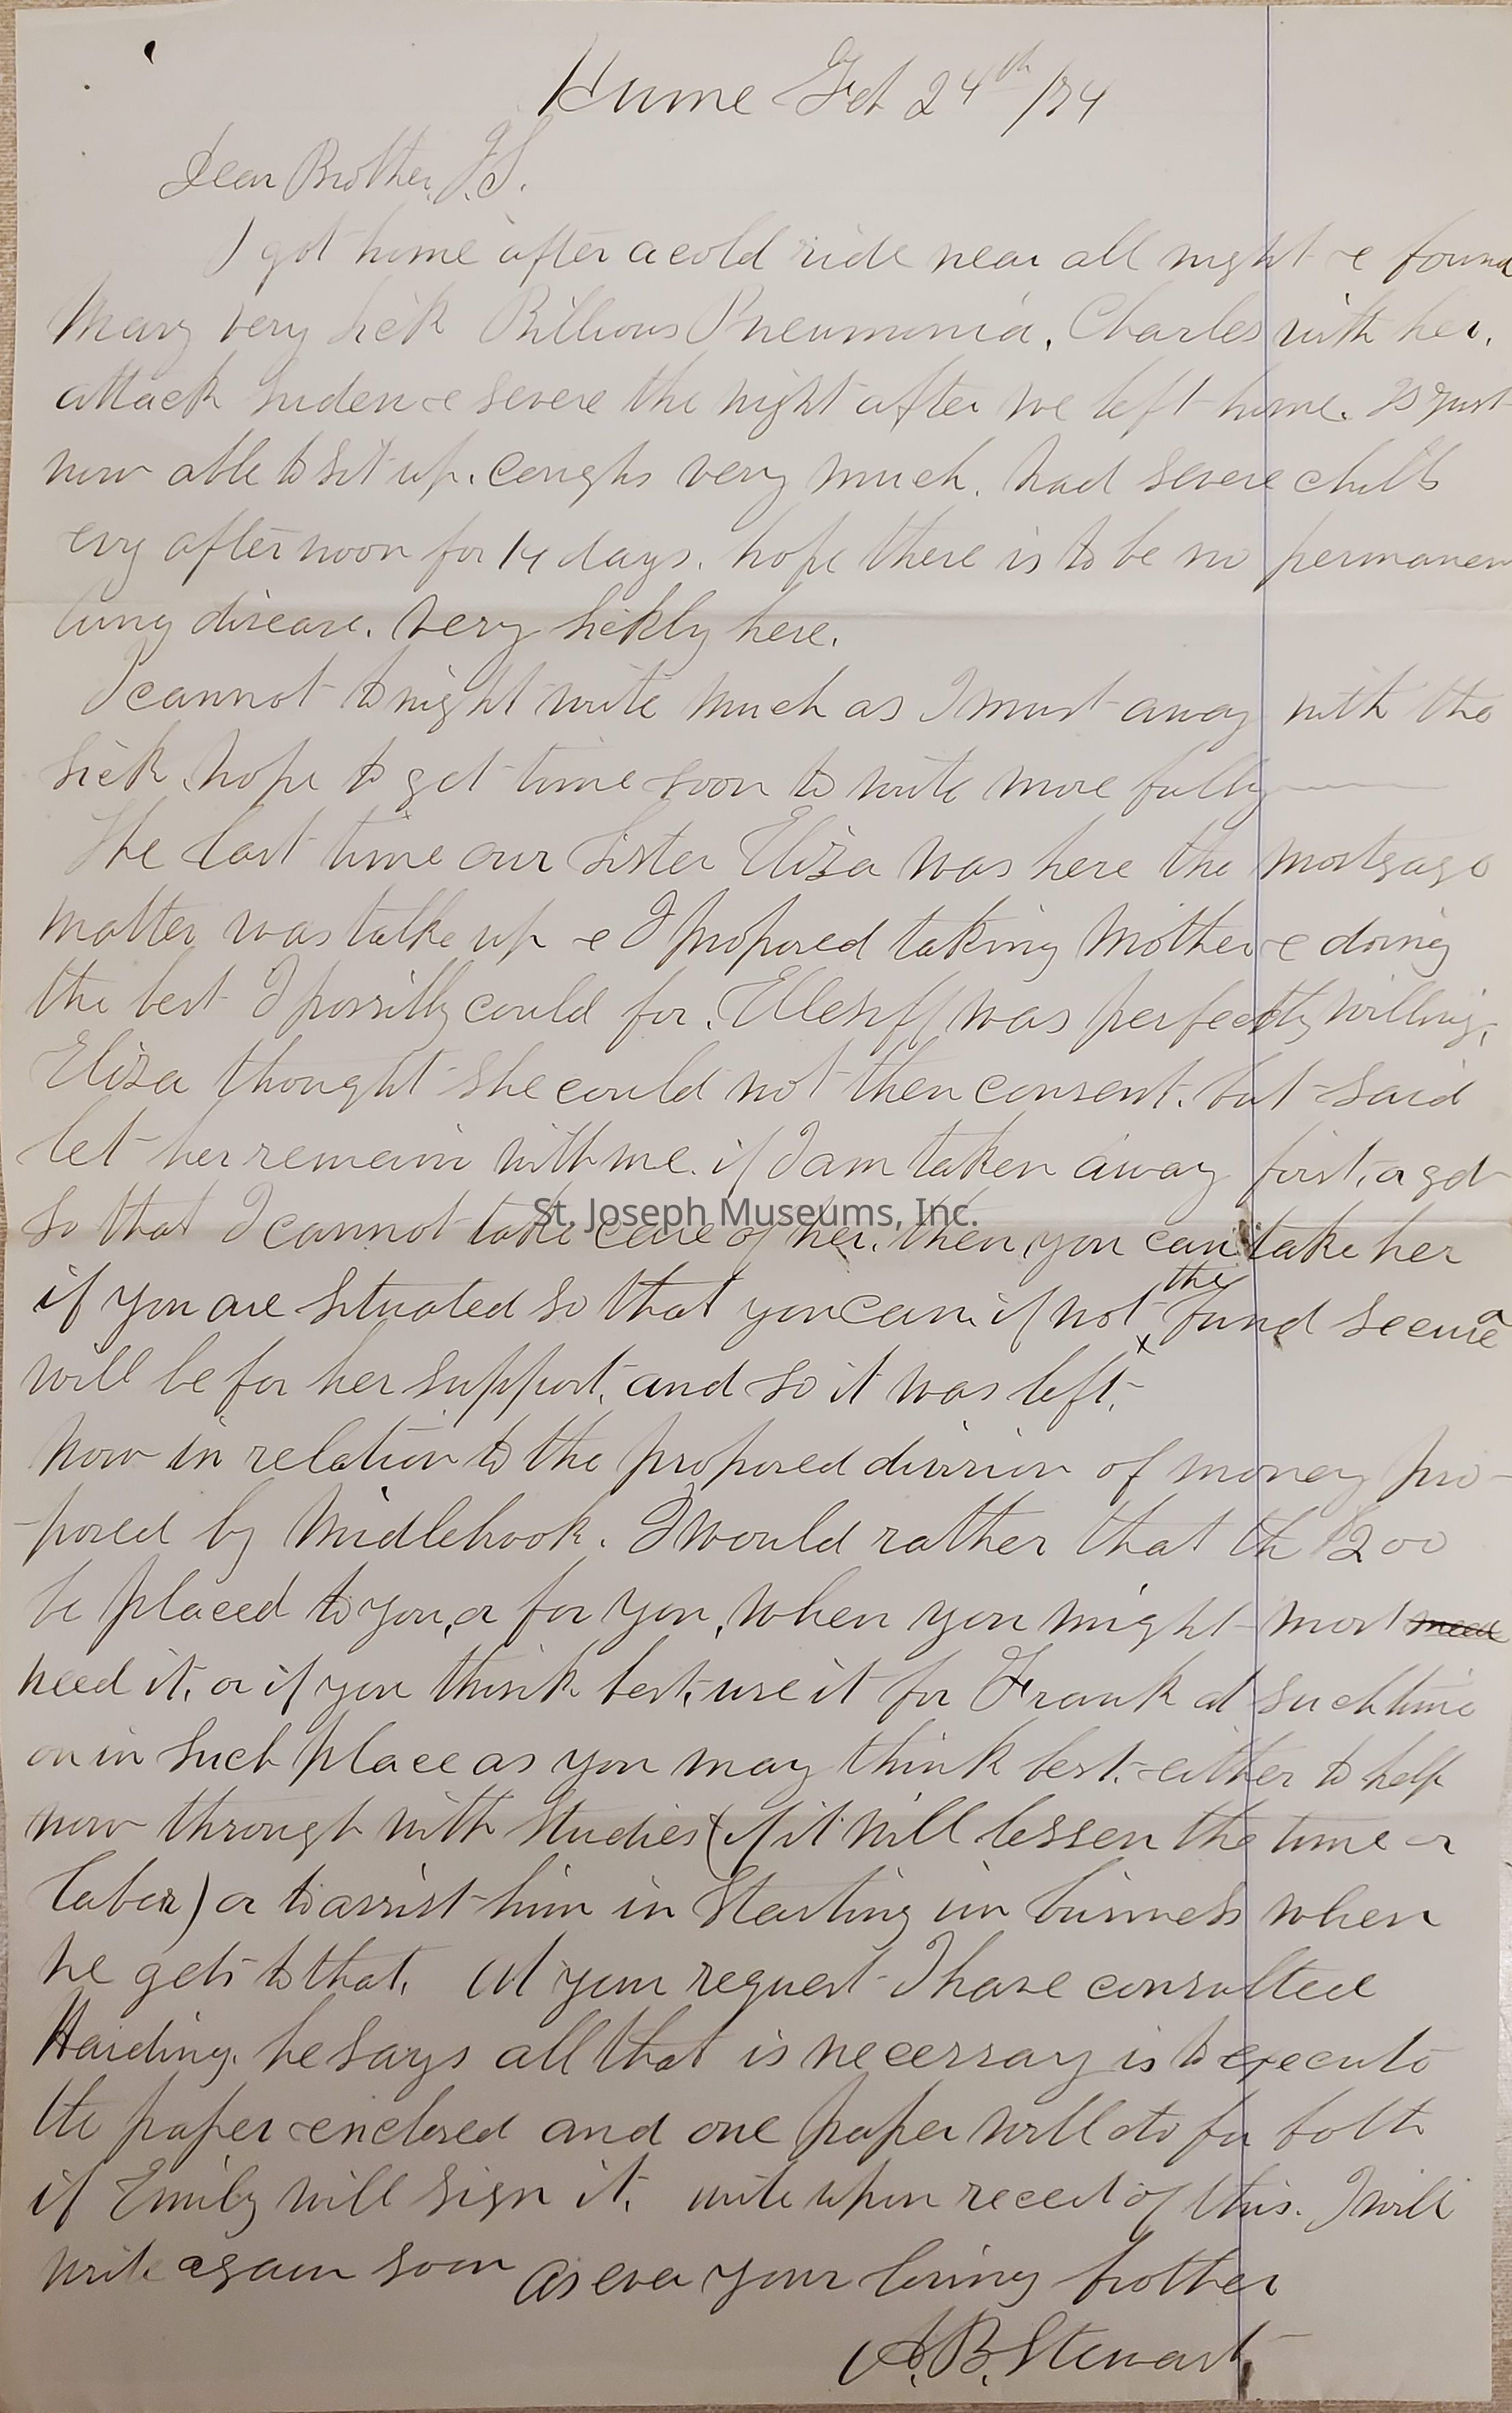 Hume Feb 24th /74
Dear Brother J.S.
I got home after a cold ride near all night & found
Mary very sick Billious Pneumonia, Charles with her.
attack suden & severe the night after we left home. Is just
now able to sit up. coughs very much. had severe chills
evry afternoon for 14 days. hope there is to be no permanen
lung disease. Very sickly here.
I cannot to night write much as I must away with the
sick hope to get time soon to write more fully
The last time our Sister Eliza was here the mortgage
matter was talke up & I propored taking Mother & doing
the best I possilly could for. was perfectly willing,
Eliza thought she could not then consent. but said
let her remain with me. if I am taken away first, or get
St. Joseph Museums, Inc.
so that I cannot take care of her. then you can take her
if you are situated so that you can. if not the fund secure
will be for her support, and so it was left.
Now in relation to the propored division of money pro-
-pored by Midlebrook. I would rather that th $200
be placed to you, or for you, when you might most need
need it. or if you think best, use it for Frank at such time
or in such place as you may think best. either to help
now through with studies (if it will lessen the time or
labor) or to assist him in starting in business when
he gets to that. At your request I have consulted
Harding. he says all that is necessary is to execute
the paper enclosed and one paper will do for both
if Emily will sign it. write upon receet of this. I will
write again soon As ever your loving brother
A.B. Stewart